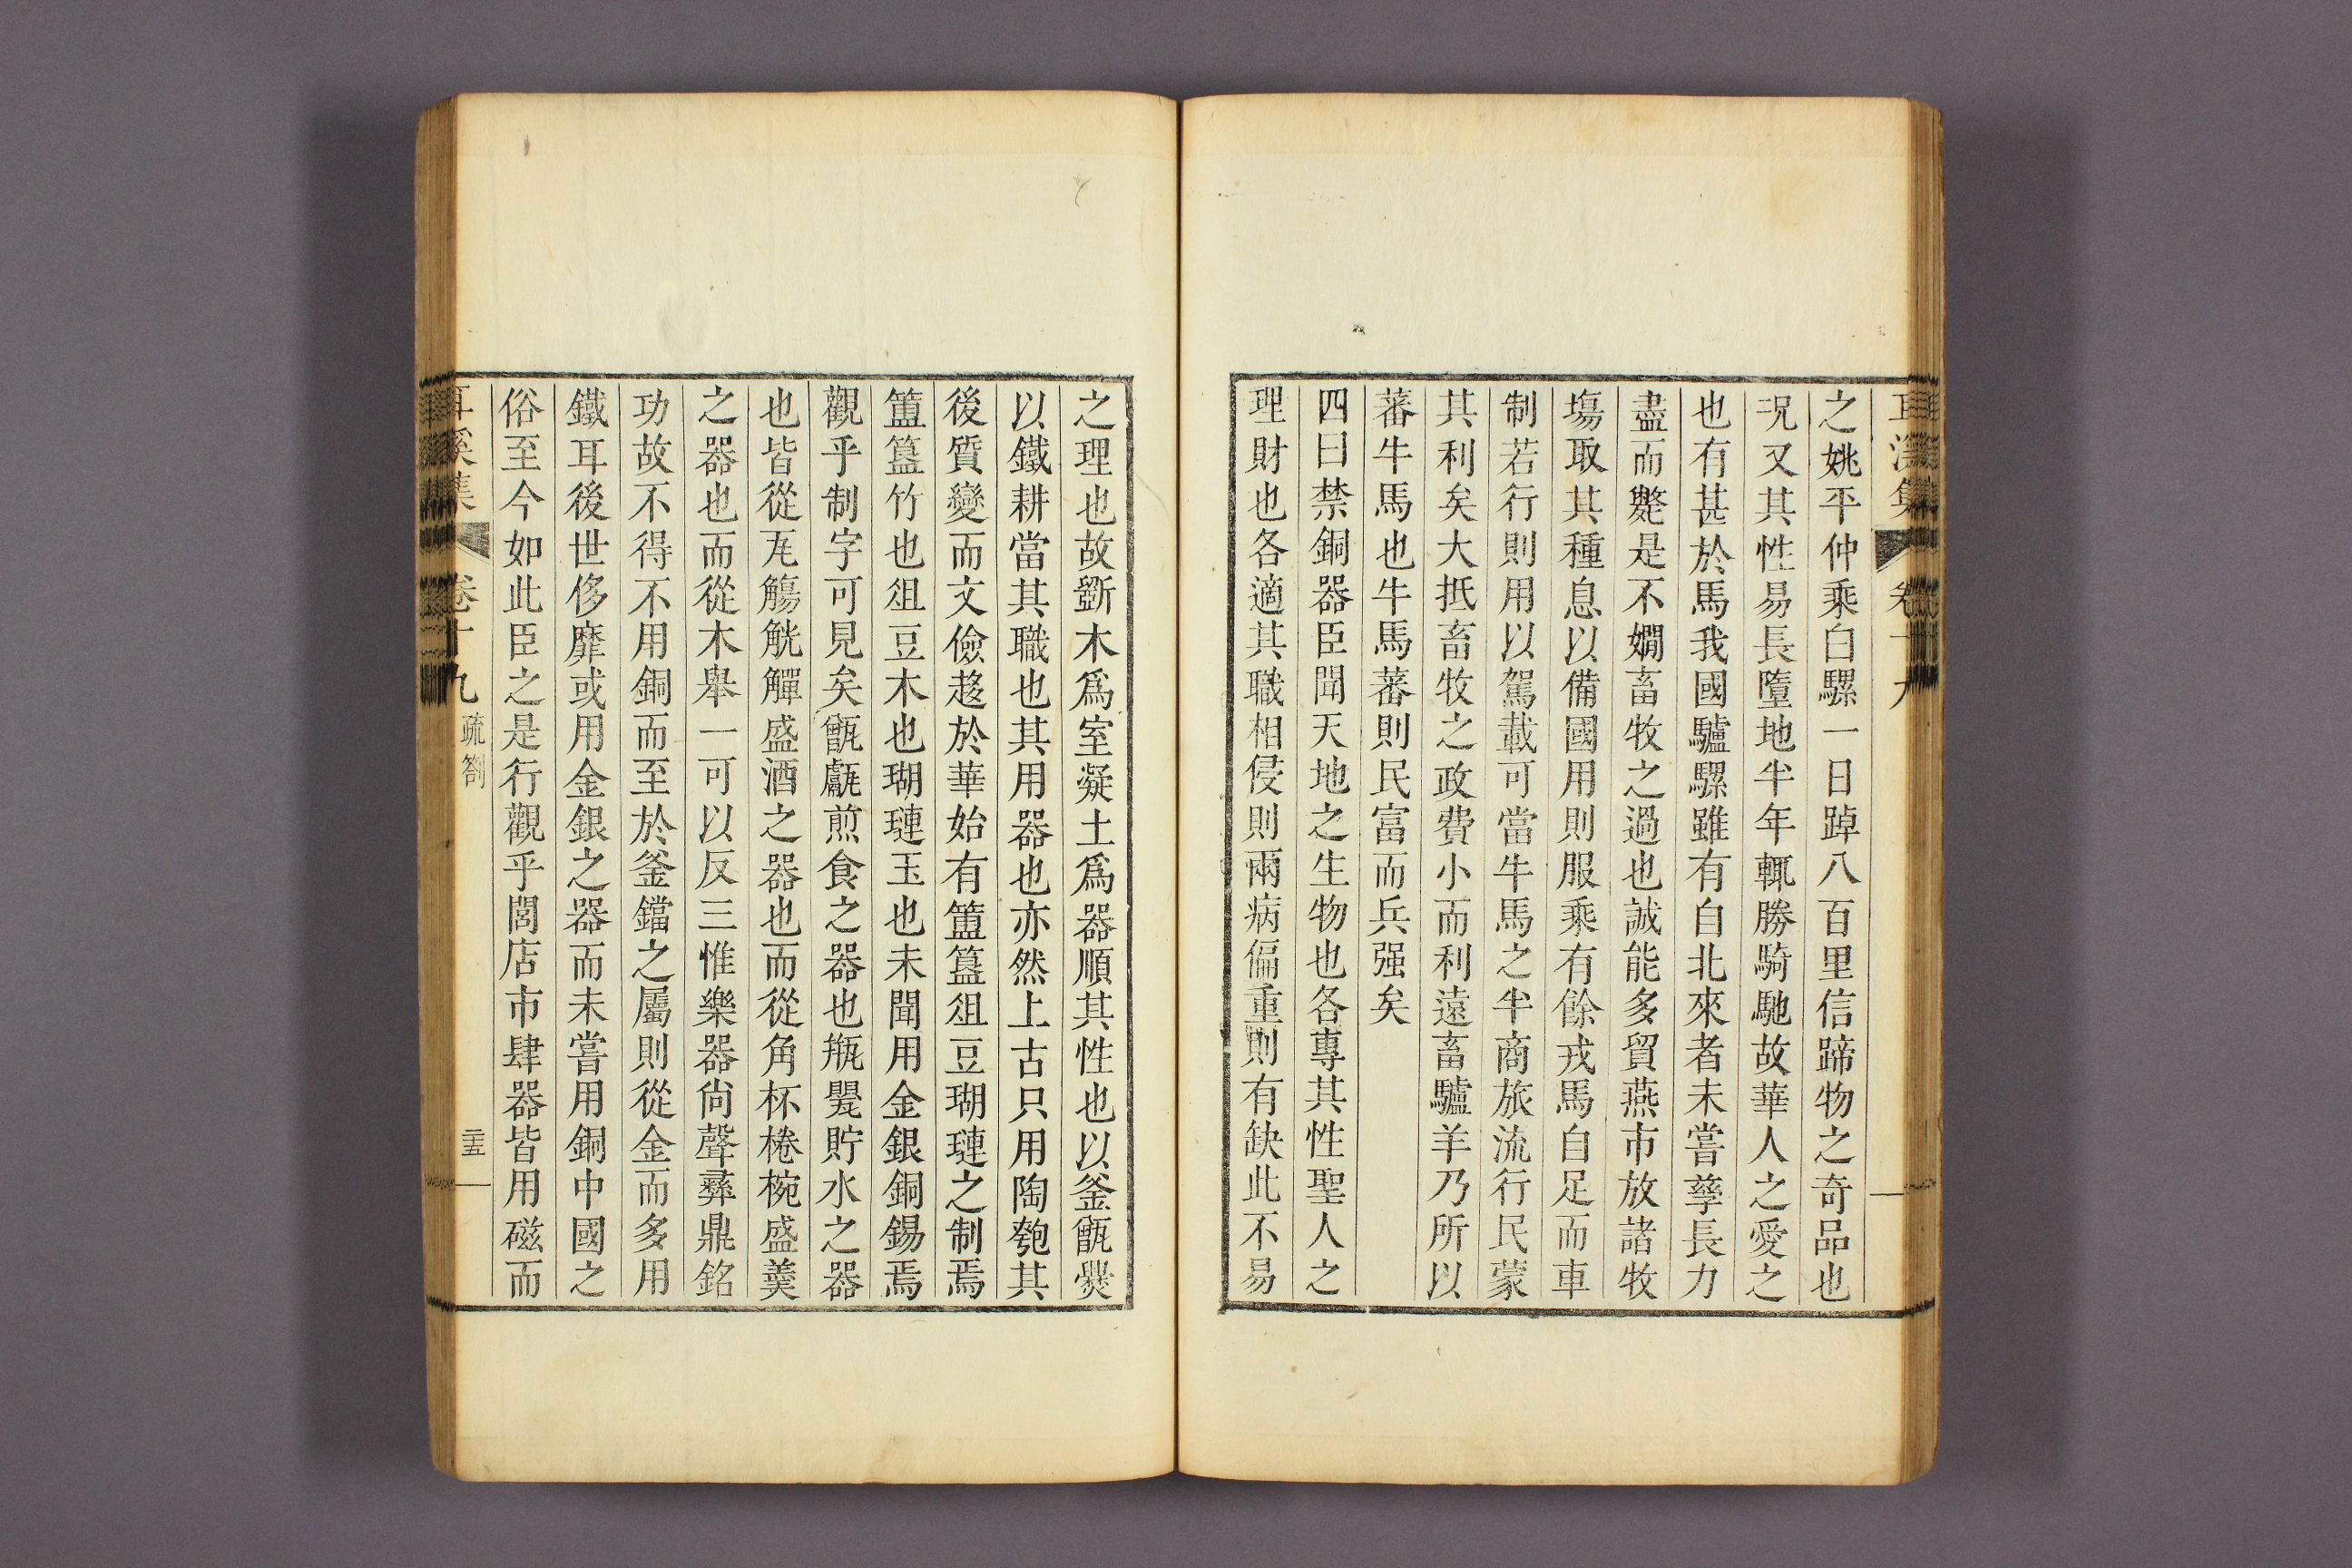 之姚平仲乘白騾一日踔八百里信蹄物之奇品也
况又其性易長墮地半年輒勝騎馳故華人之愛之
也有甚於馬我國驢騾雖有自北來者未嘗孳長力
盡而斃是不嫺畜牧之過也誠能多貿燕市放諸牧
塲取其種息以備國用則服乘有餘戎馬自足而車
制若行則用以駕載可當牛馬之半商旅流行民蒙
其利矣大抵畜牧之政費小而利遠畜驢羊乃所以
蕃牛馬也牛馬蕃則民富而兵强矣
四曰禁銅器臣聞天地之生物也各專其性聖人之
理財也各適其職相侵則兩病偏重則有缺此不易
之理也故斲木爲室凝土爲器順其性也以釜甑爨
以鐵耕當其職也其用器也亦然上古只用陶匏其
後質變而文儉趍於華始有簠簋俎豆瑚璉之制焉
簠簋竹也俎豆木也瑚璉玉也未聞用金銀銅錫焉
觀乎制字可見矣甑甗煎食之器也瓶甖貯水之器
也皆從瓦觴觥觶盛酒之器也而從角杯棬椀盛羹
之器也而從木舉一可以反三惟樂器尙聲彝鼎銘
功故不得不用銅而至於釜鐺之屬則從金而多用
鐵耳後世侈靡或用金銀之器而未嘗用銅中國之
俗至今如此臣之是行觀乎閭店市肆器皆用磁而
耳溪集 卷十九 疏箚 二十五